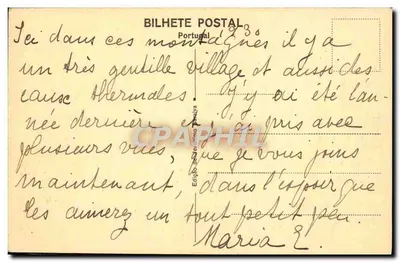 BILHETE POSTAL
Portugal
1930
Ici dans ces montagnes il y a
un très gentille village, et aussi des
eaux thermales. J'y ai été l'an-
née dernière et j'ai pris avec
plusieurs vues, que je vous joins
maintenant, dans l'espoir que
les aimerez un tout petit peu.
Maria E.
CPARAMA